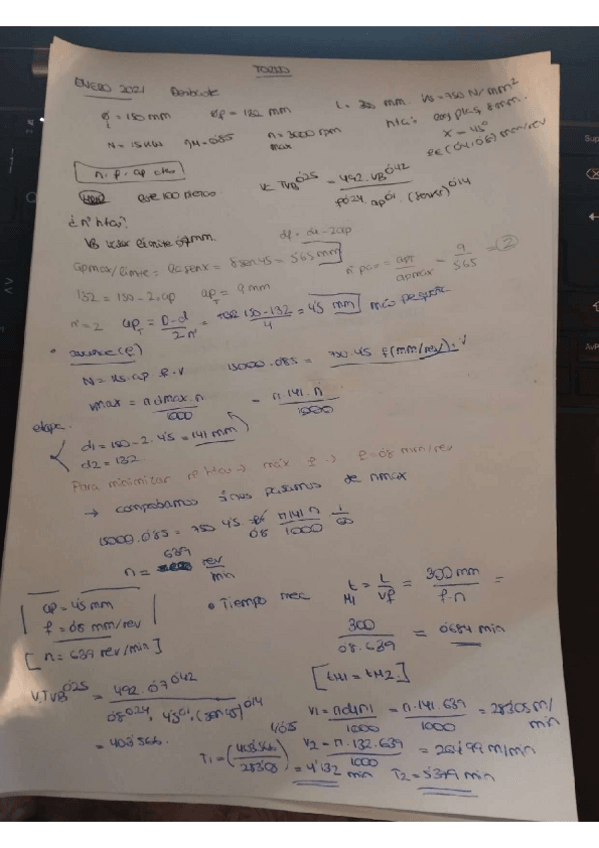 TORNO
ENERO 2021 Desbaste
ϕi = 150 mm ϕf = 132 mm L = 300 mm. Ws = 750 N/mm²
N = 15 kW ηM = 0'85 n max = 3000 rpm hta: long plaq 8 mm.
χ = 45°
f ∈ (0'4, 0'6) mm/rev
n. f. ap cte
lote 100 piezas. V. T_VB^0'25 = 492. VB^0'42 / f^0'24. ap^0'1. (sen χ)^0'14
¿nº htas?
VB valor límite 0'7mm. df = di - 2ap
apmax/limite = lc senx = 8 sen 45 = 5'65 mm nº pas = apT / apmax = 9 / 5'65 = 2
132 = 150 - 2. ap apT = 9 mm
nº = 2 apT = D-d / 2n = 150-132 / 4 = 4'5 mm más pequeña
• avance (f)
N = Ws. ap. f. v 15000. 0'85 = 750. 4'5 f (mm/rev). V
Vmax = π dmax. n / 1000 = π. 141. n / 1000
etapa
d1 = 150 - 2. 4'5 = 141 mm
d2 = 132
Para minimizar nº htas → máx f → f = 0'8 mm/rev
→ comprobamos si nos pasamos de nmax
15000. 0'85 = 750 4'5 0'8 π 141 n / 1000 1/60
n = 639 rev/min
ap = 4'5 mm
f = 0'8 mm/rev
[n = 639 rev/min]
• Tiempo mec t M1 = L / Vf = 300 mm / f. n =
300 / 0'8. 639 = 0'684 min
[tM1 = tM2.]
V. T_VB^0'25 = 492. 0'7^0'42 / 0'8^0'24. 4'5^0'1. (sen 45)^0'14
= 408'566.
V1 = π d1 n1 / 1000 = π. 141. 639 / 1000 = 283'05 m/min
V2 = π. 132. 639 / 1000 = 264'99 m/min
T1 = (408'566 / 283'05)^1/0'25 = 4'132 min T2 = 5'379 min